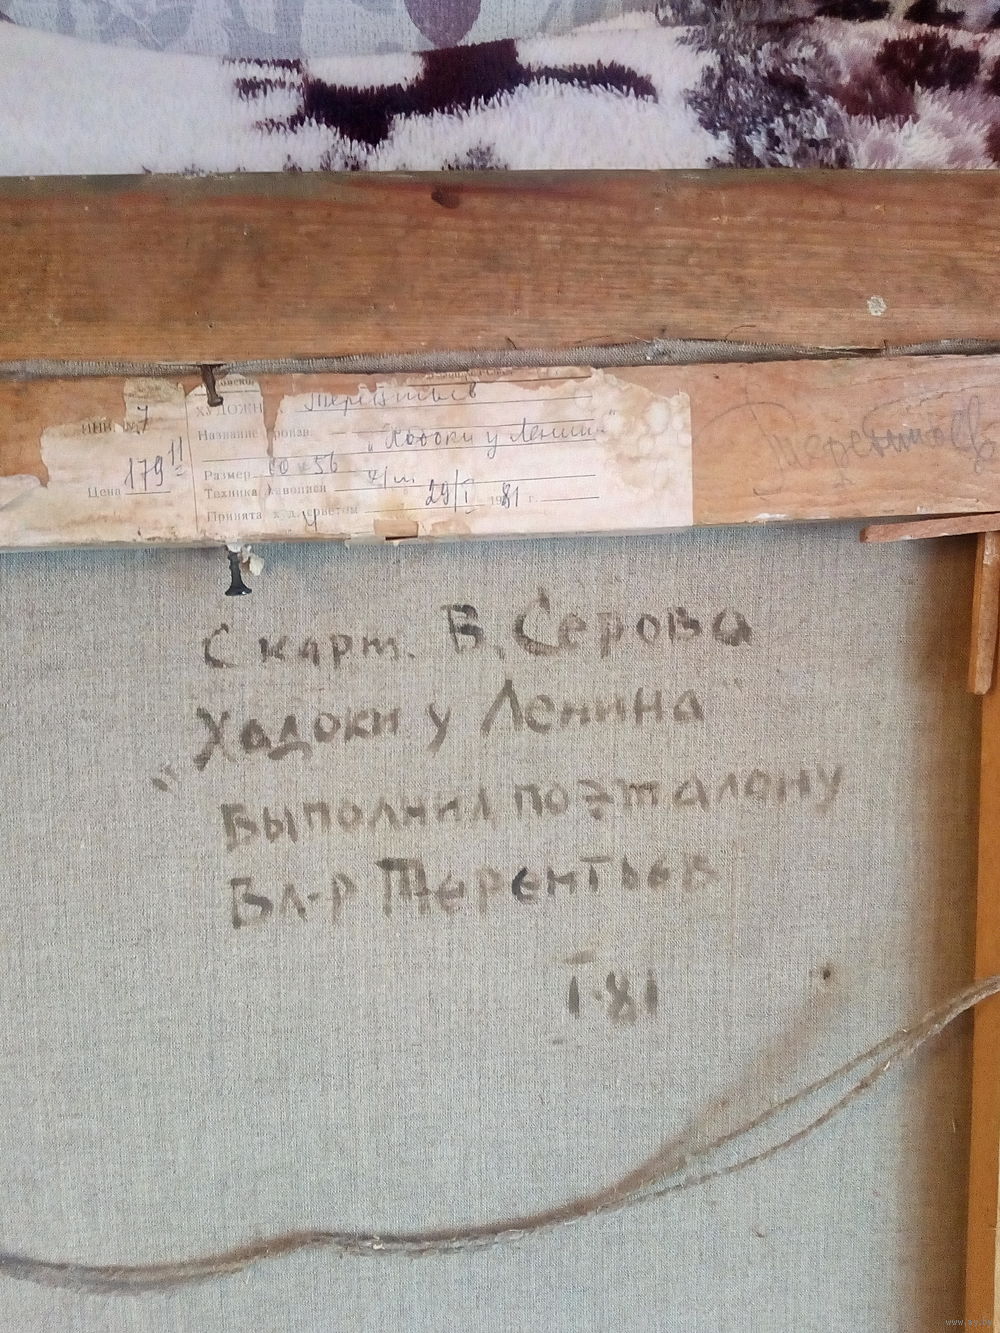 ХУДОЖН Терентьев
Название произв. „Ходоки у Ленина"
Цена 179 11
Размер 80 x 56
Техника живописи х/м
Принята худ. советом 29/I 1981 г.
Терентьев
С карт. В. Серова
„Ходоки у Ленина"
Выполнил по эталону
Вл-р Терентьев
I-81